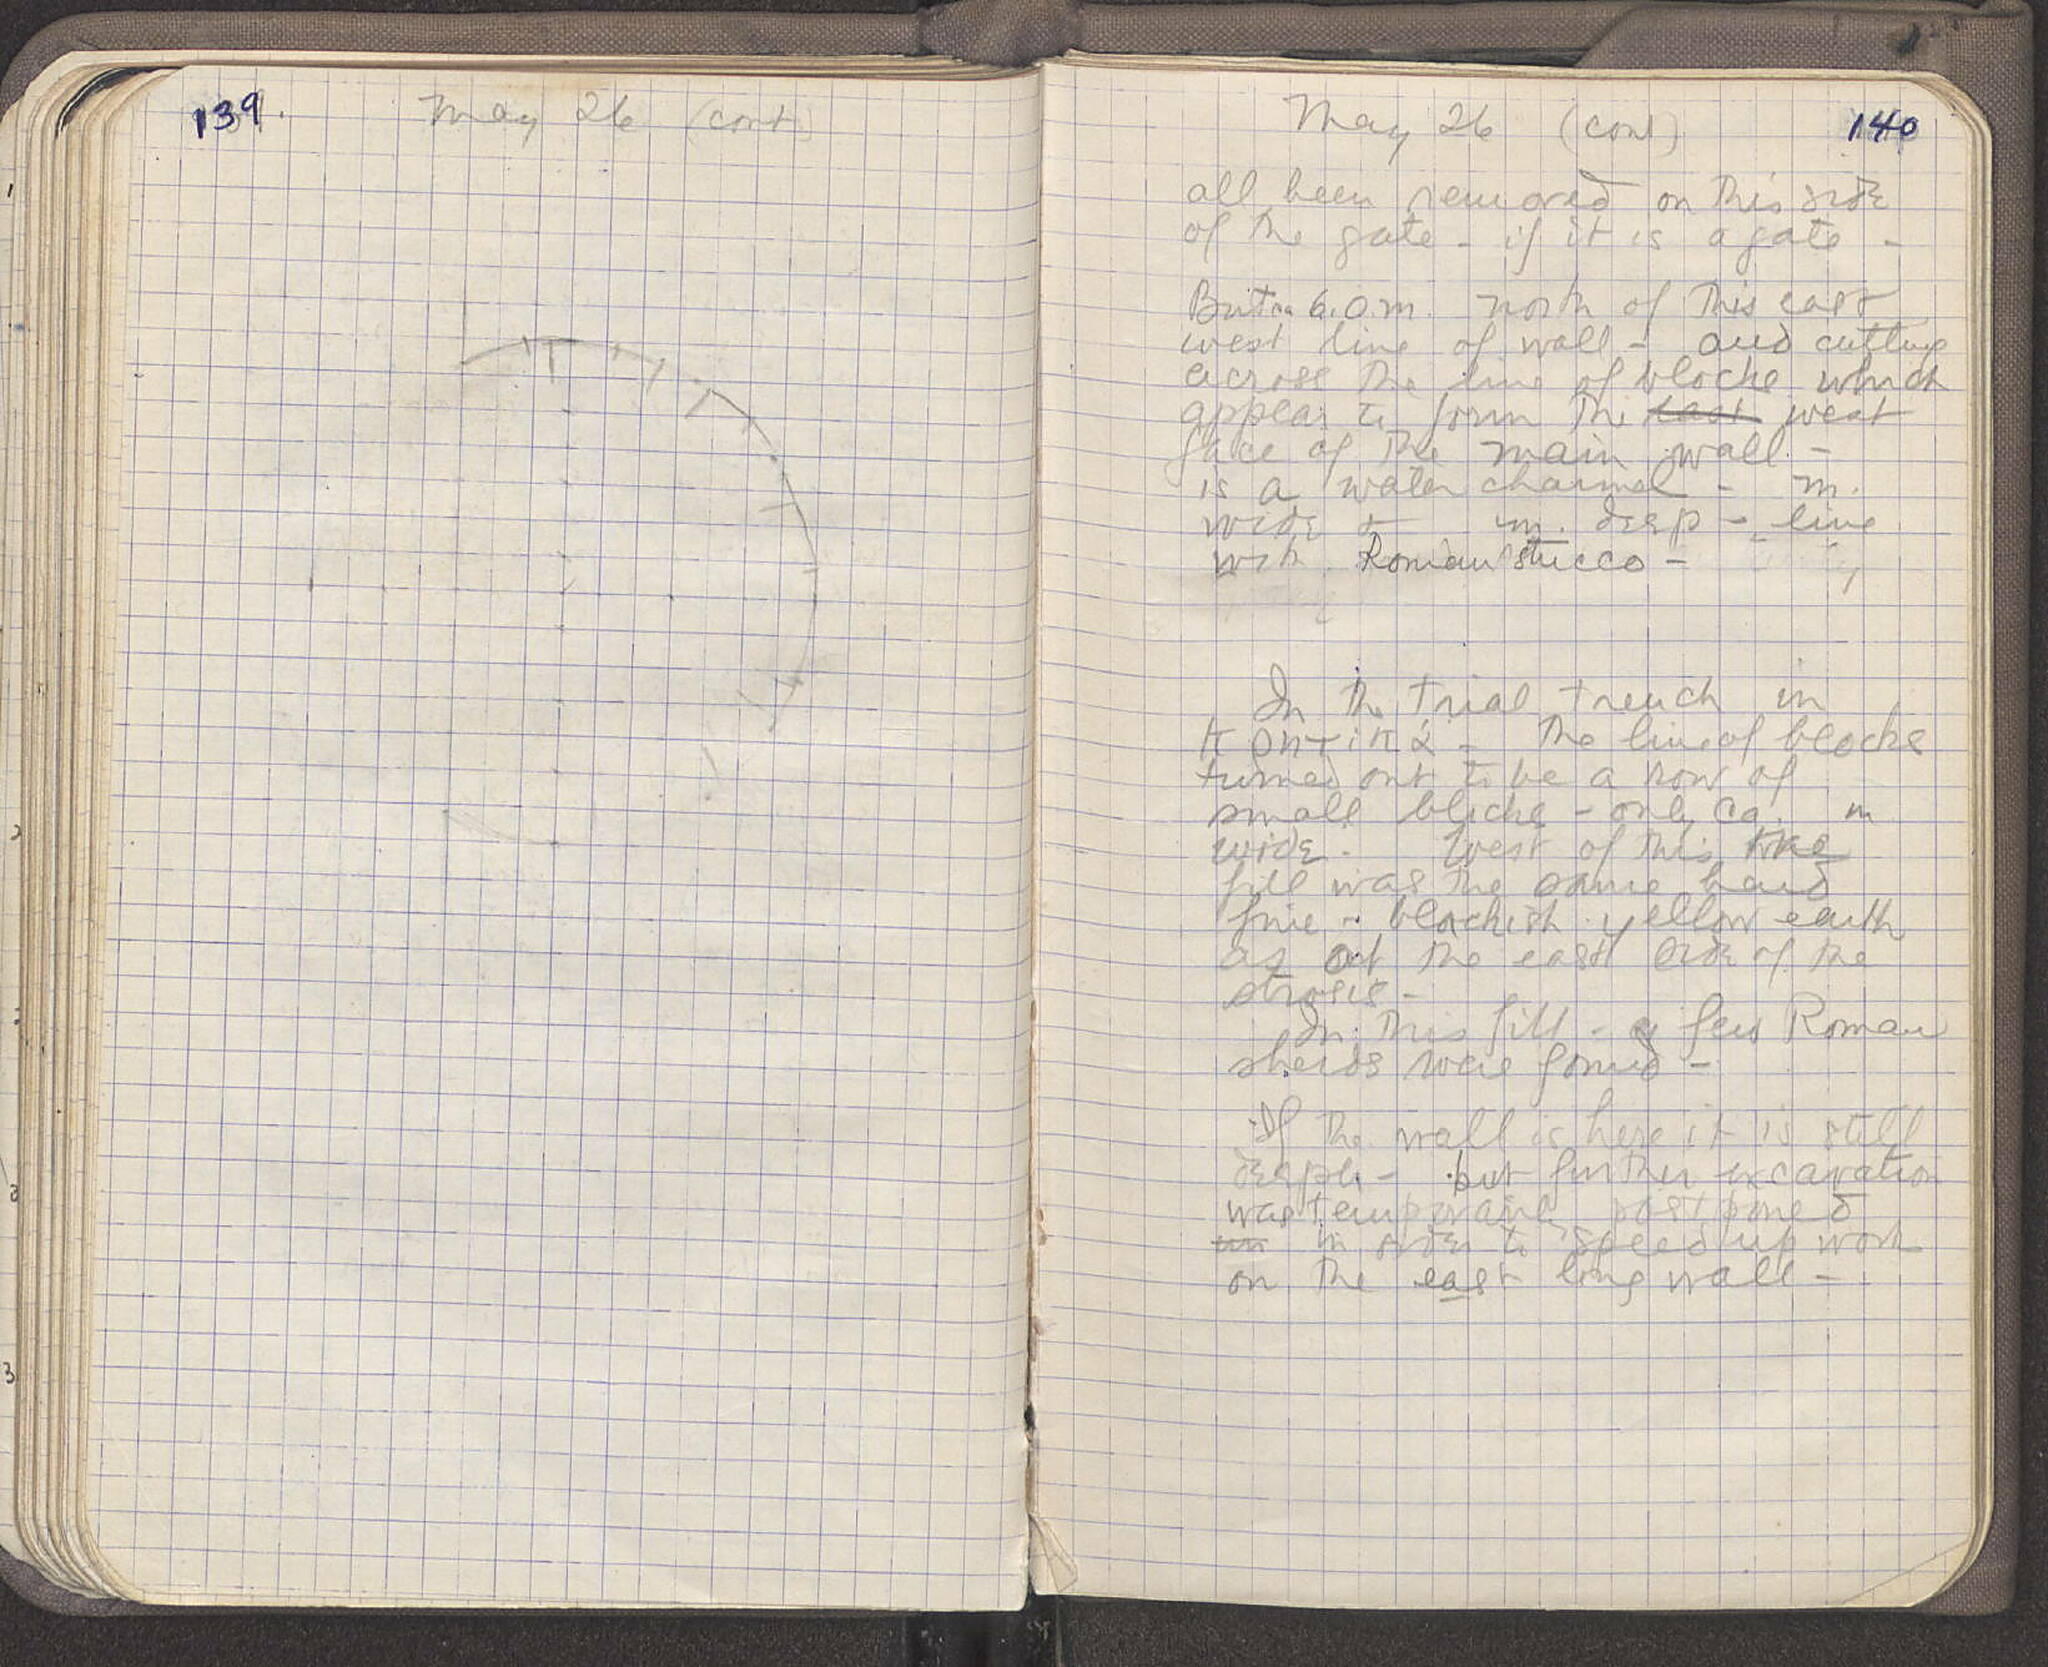 139.
May 26 (cont)
May 26 (cont)
140
all been removed on this side
of the gate - if it is a gate -
But ca 6.0.m. north of this east
west line of wall - and cutting
across the line of blocks which
appear to form the east west
face of the main wall -
is a water channel - m.
wide + m. deep - line
with Roman stucco -
In the trial trench in
the line of blocks
turned out to be a row of
small blocks - only ca. m
wide. West of this the
fill was the same hard
fine - blackish yellow earth
as at the east side of the
strosis -
In this fill - a few Roman
sherds were found -
If the wall is here it is still
deeper - but further excavation
was temporarily postponed
in order to speed up work
on the east long wall -